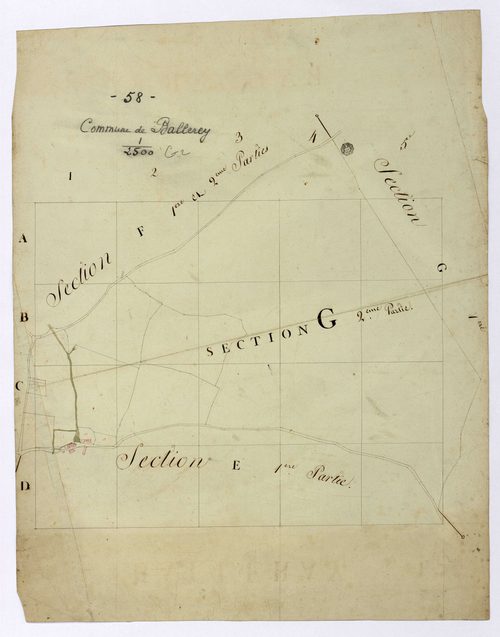 - 58 -
Commune de Balleroy
1
2500
G2
1 2 3 4 5
A
B
C
D
Section F 1ère et 2ème Parties
Section G 1ère
SECTION G 2ème Partie.
Section E 1ère Partie.